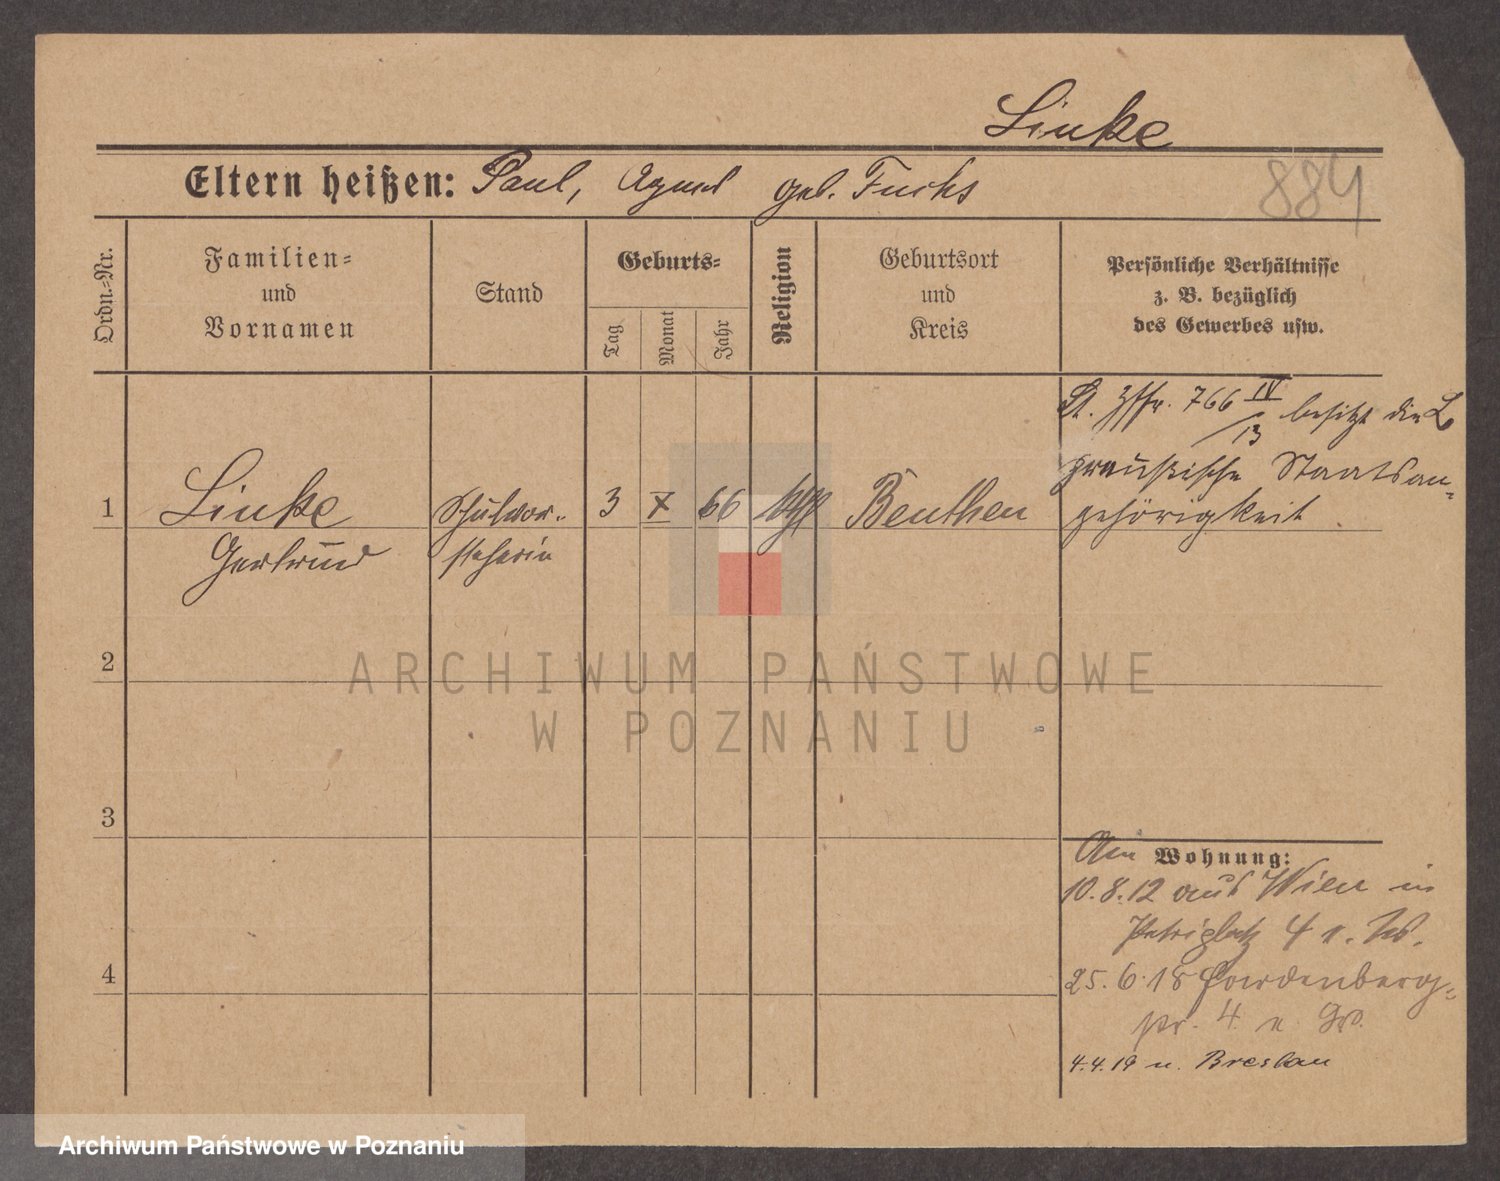 Linke
Eltern heißen: Paul, Agnes geb. Fuchs
884
Ordn.-Nr.
Familien-
und
Vornamen
Stand
Geburts-
Tag
Monat
Jahr
Religion
Geburtsort
und
Kreis
Persönliche Verhältnisse
z. B. bezüglich
des Gewerbes usw.
766 IV/13 besitzt die
preußische Staatsan-
gehörigkeit
1 Linke Schulvor- 3 X 66 Beuthen
Gertrud steherin
ARCHIWUM PAŃSTWOWE
W POZNANIU
2
3
4
Wohnung:
10.8.12 aus Wien in
Petriplatz 4
25.6.18
4
4.4.19 n. Breslau
Archiwum Państwowe w Poznaniu